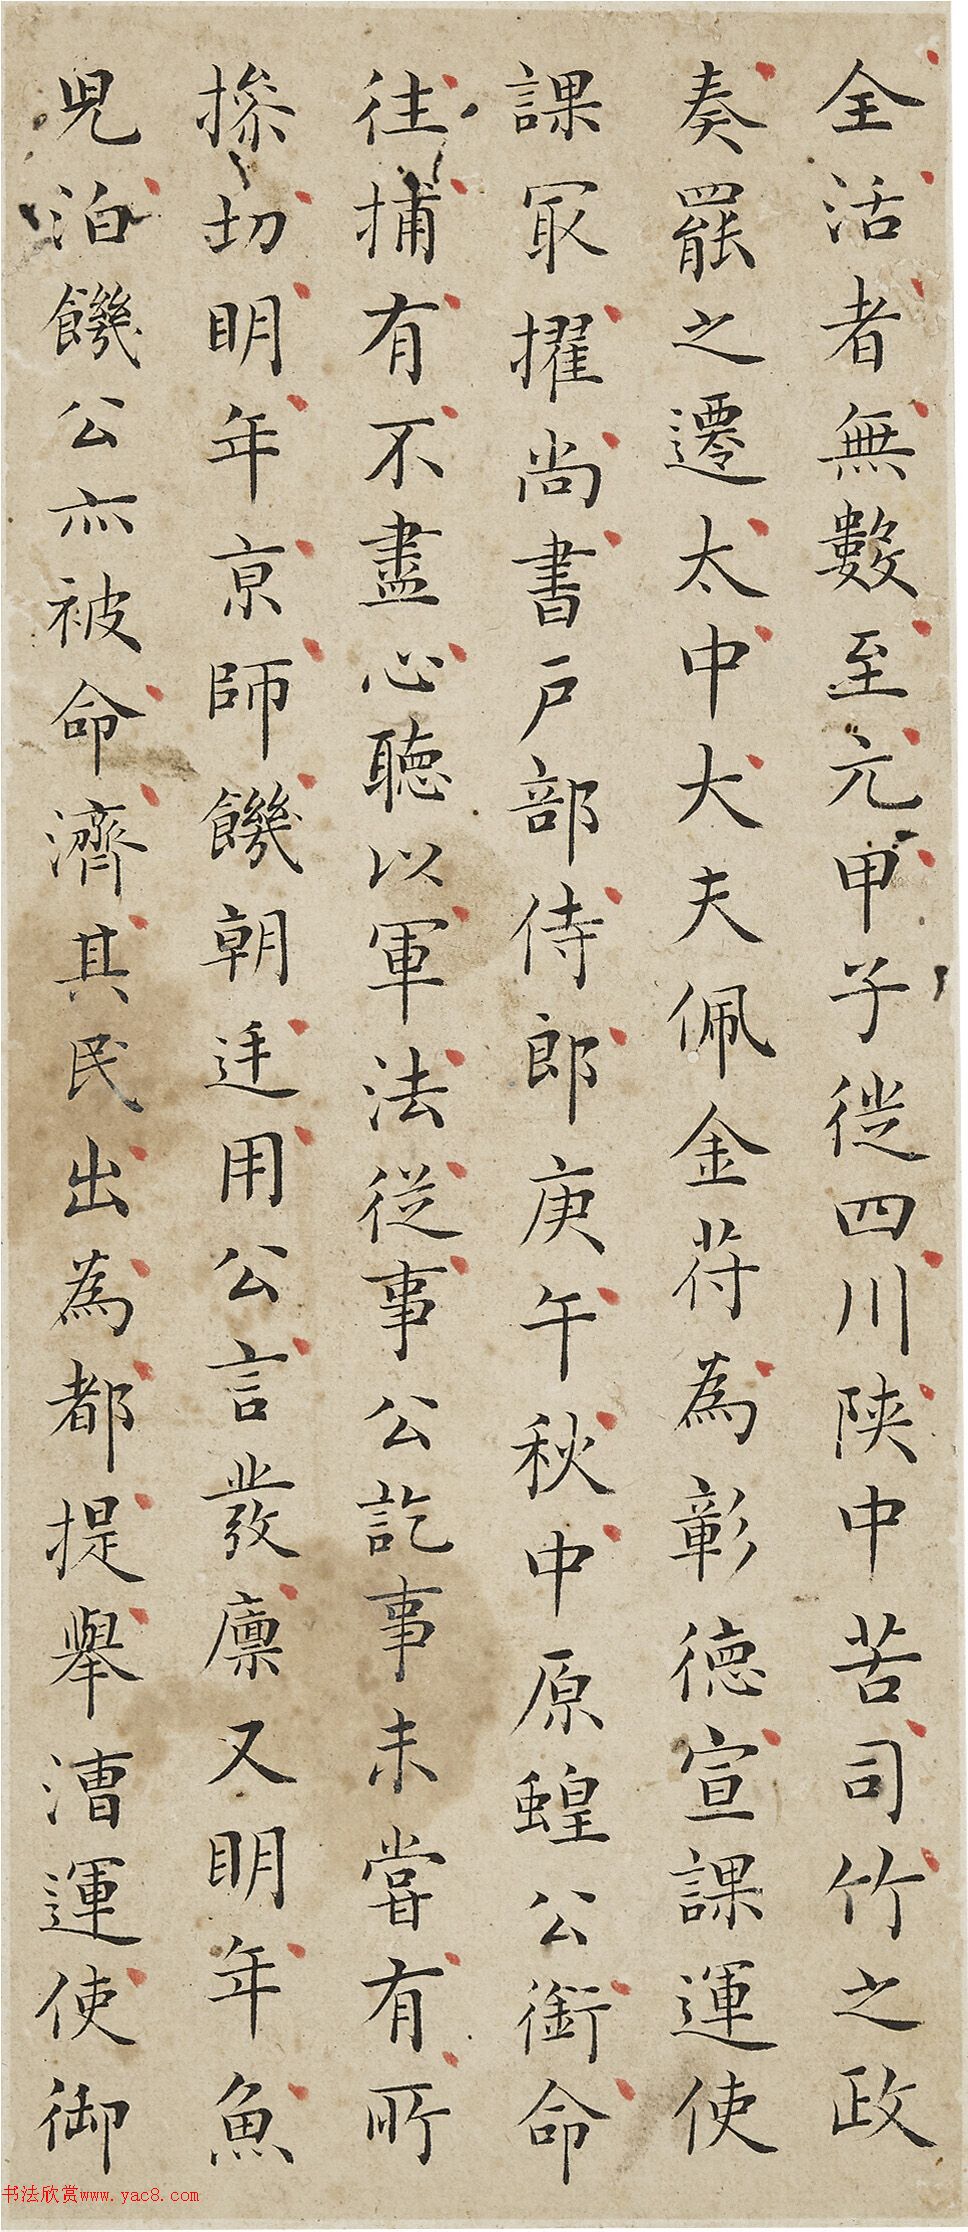 全活者無數至元甲子從四川陝中苦司竹之政
奏罷之遷太中大夫佩金苻為彰德宣課運使
課冣擢尚書戶部侍郎庚午秋中原蝗公銜命
往捕有不盡心聽以軍法從事公訖事未嘗有所
摻切明年京師饑朝廷用公言發廪又明年魚
兒泊饑公亦被命濟其民出為都提舉漕運使御
书法欣赏www.yac8.com